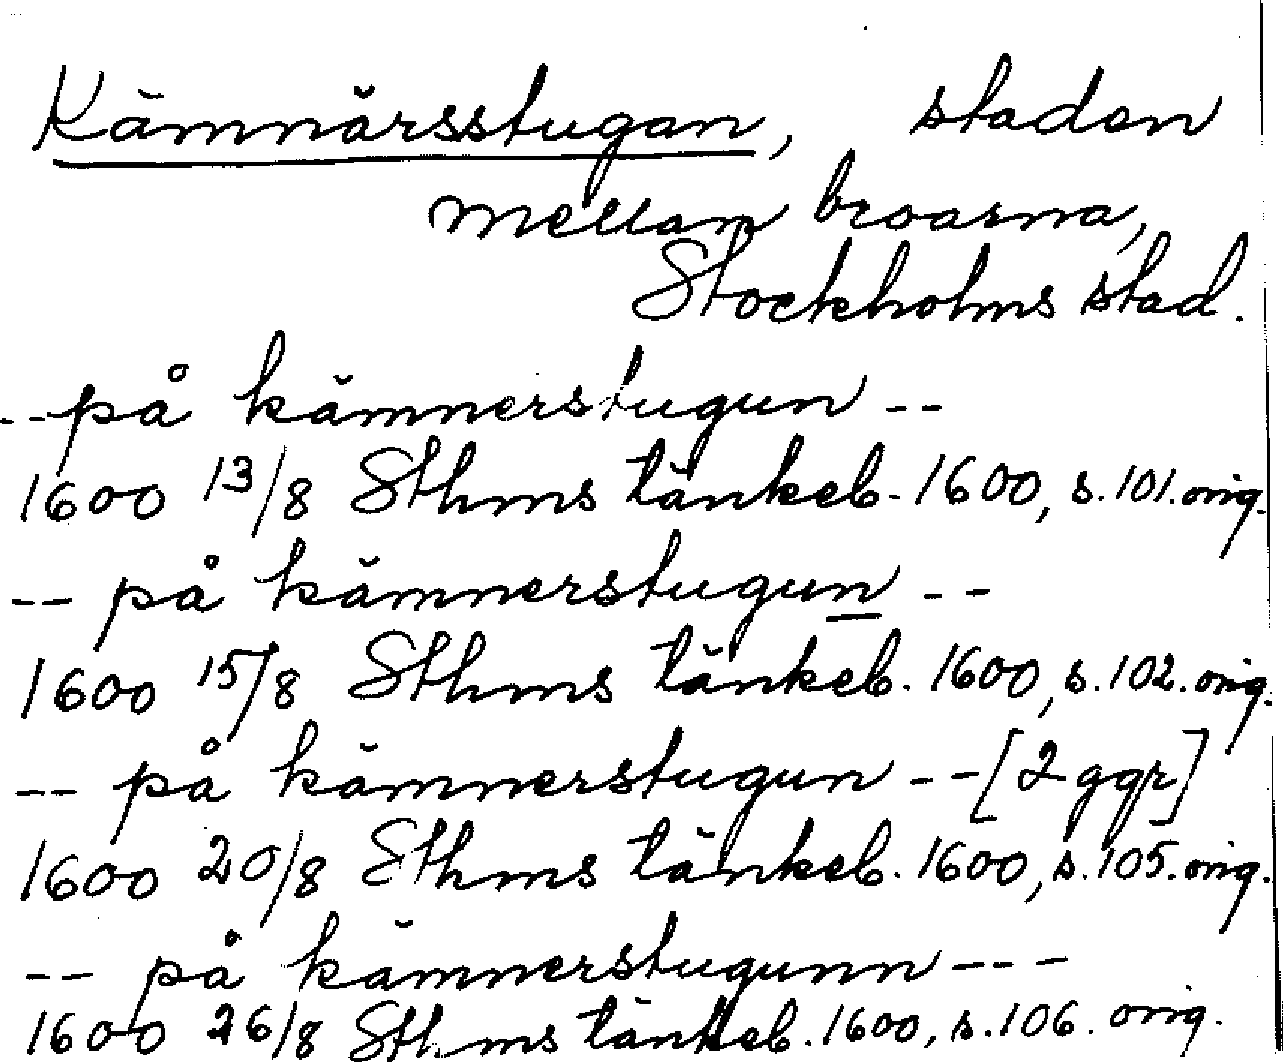 Kämnärsstugan, staden
mellan broarna,
Stockholms stad.
--på kämnerstugun--
1600 13/8 Sthms tänkeb. 1600, s.101.orig.
-- på kämnerstugun --
1600 15/8 Sthms tänkeb. 1600, s.102.orig.
-- på kämnerstugun --[2 ggr]
1600 20/8 Sthms tänkeb. 1600, s.105.orig.
-- på kämnerstugunn ---
1600 26/8 Sthms tänkeb. 1600, s.106. orig.